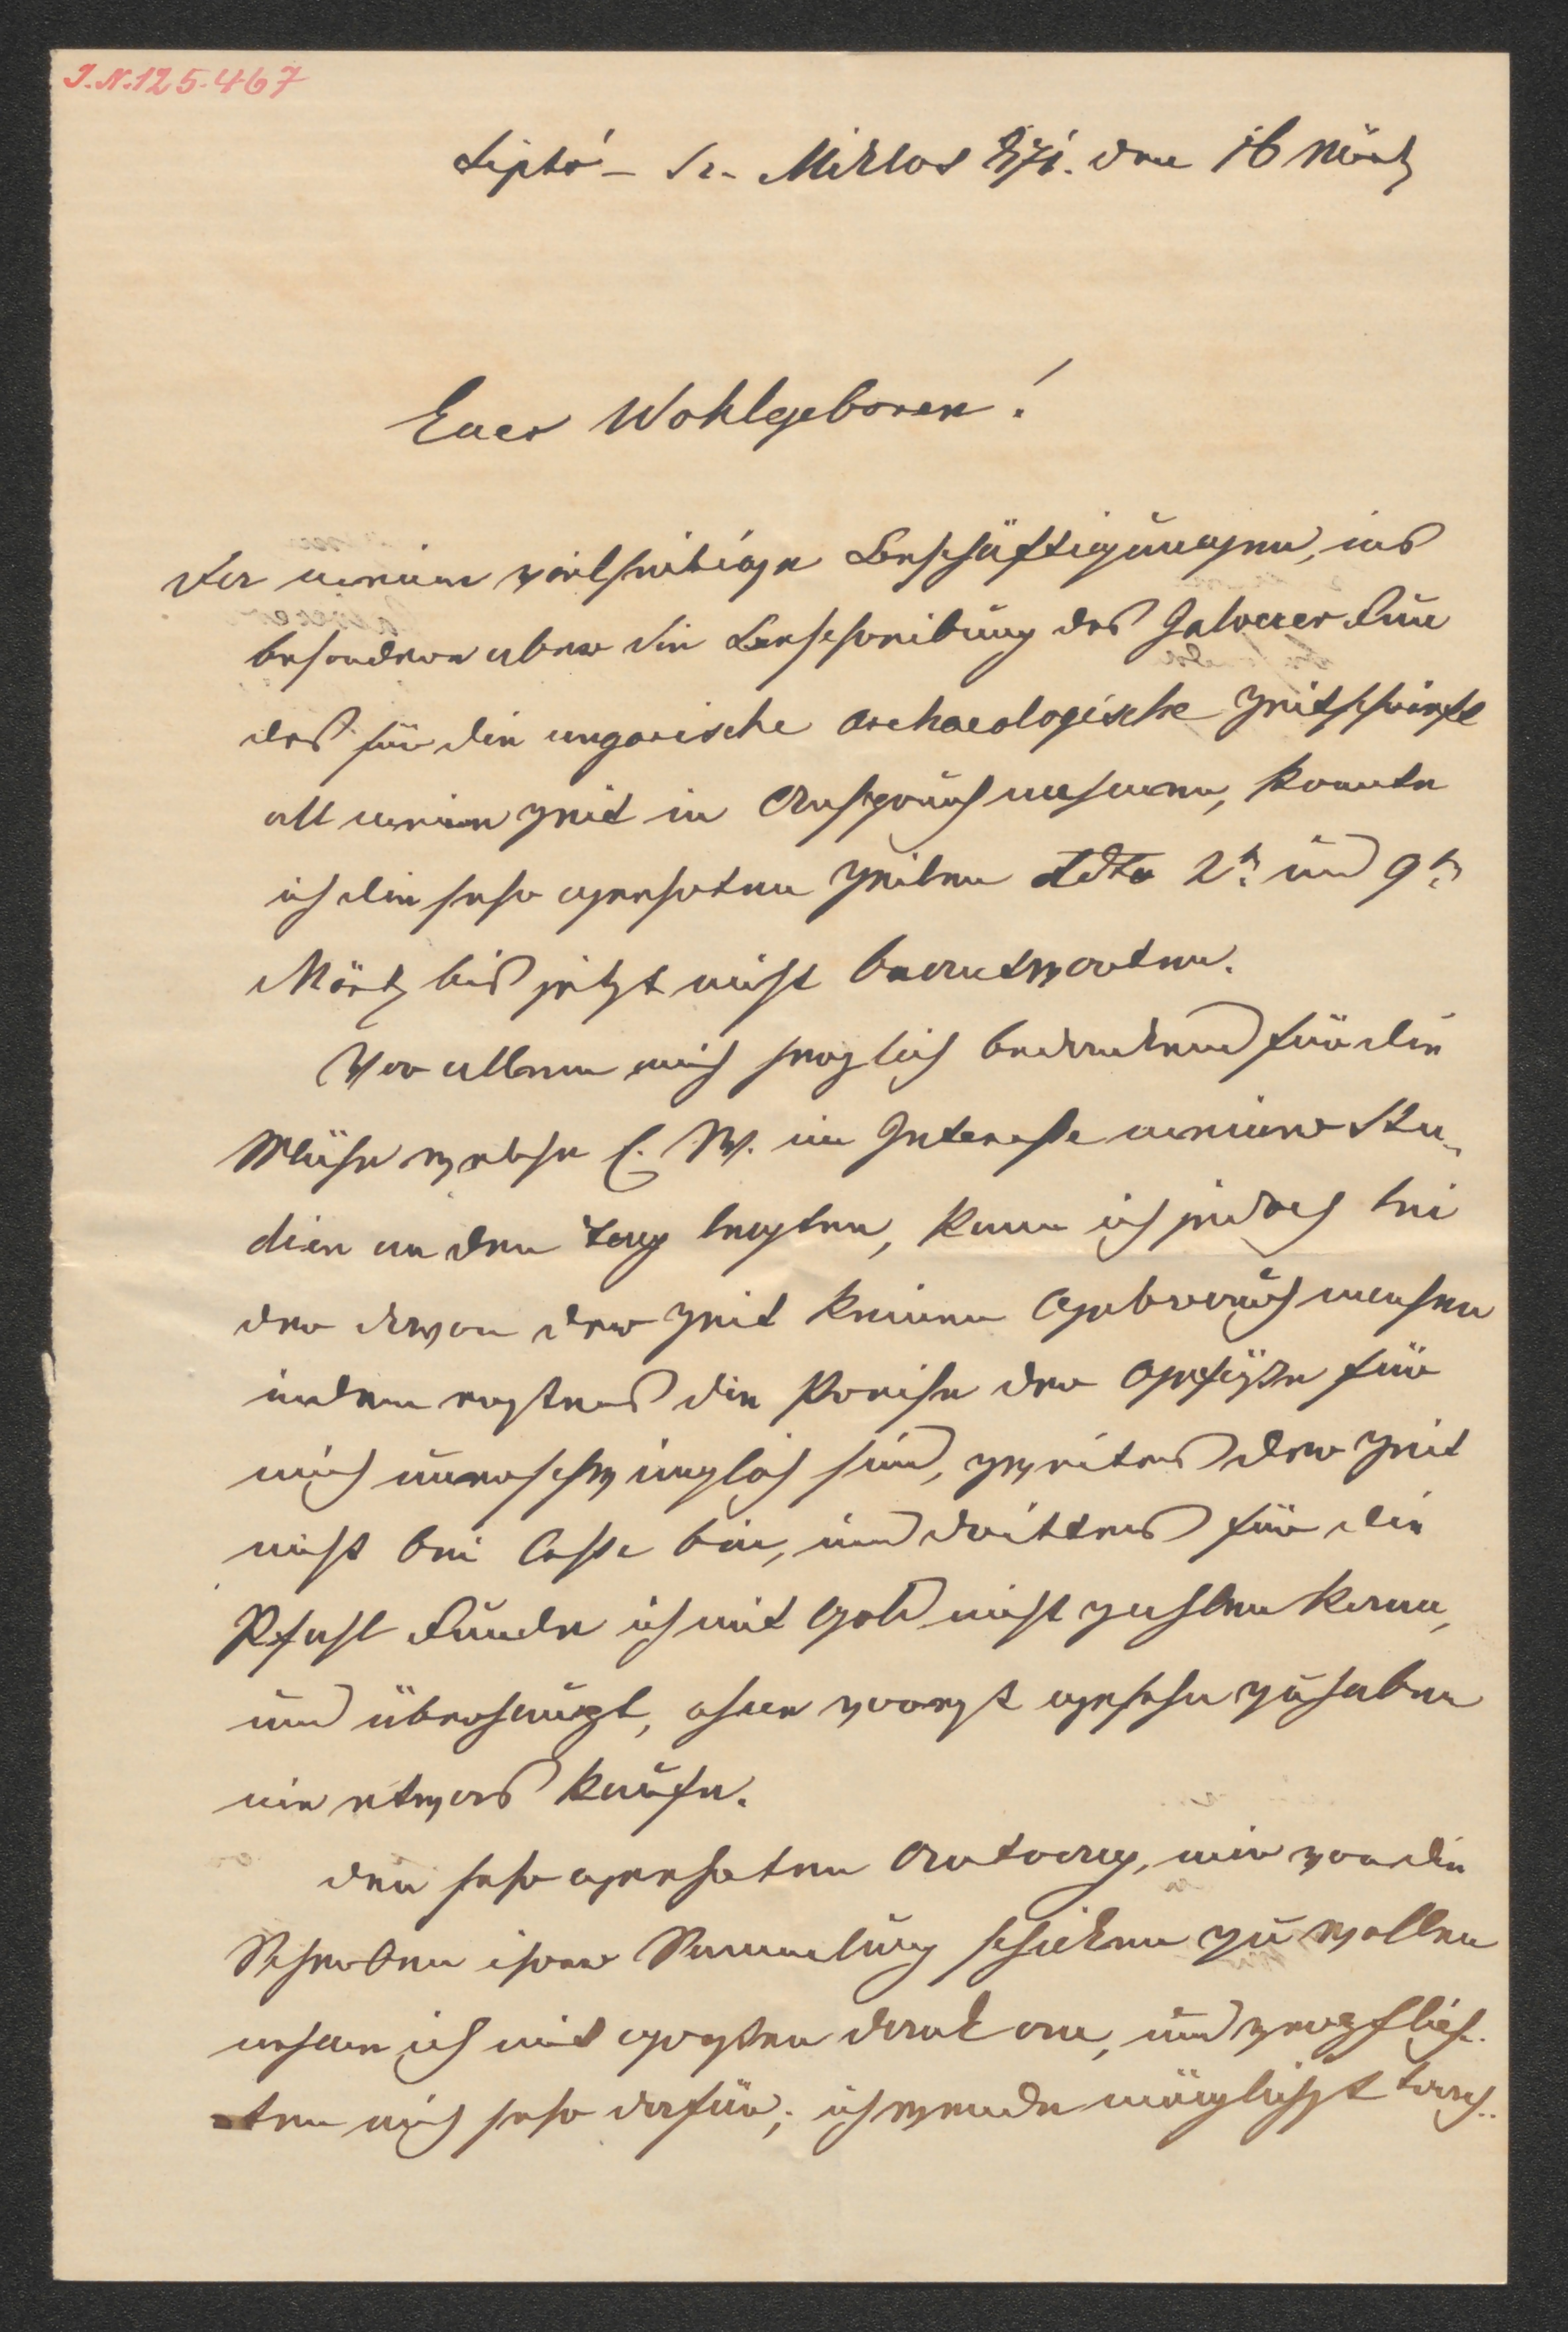 I.N. 125.467
Liptó - Sz. Miklos 871. den 16 März
Euer Wohlgeboren!
Da meine vielseitige Beschäftigungen, ins
besondere aber die Beschreibung des Fun
des für die ungarische archaeologische Zeitschrift
all meine Zeit in Anspruch nehmen, konnte
ich die sehr geehrten Zeilen ddto 2t. und 9t.
März bis jetzt nicht beantworten.
Vor allem mich herzlich bedankend für die
Mühe welche E. W. im Interesse meiner Stu-
dien an den Tag legten, kann ich jedoch bei
der davon der Zeit keinen Gebrauch machen
indem erstens die Preise der Gefäße für
mich unerschwinglich sind, zweitens der Zeit
nicht bei Cassa bin, und drittens für die
Pfahl Funde ich mit Gold nicht zahlen kann,
und überhaupt, ohne zuerst gesehn zu haben
nie etwas kaufe.
Den sehr geehrten Antrag, mir von die
Scherben ihrer Sammlung schicken zu wollen
nehme ich mit größten Dank an, und verpflich-
ten mich sehr dafür; ich werde möglichst trach-